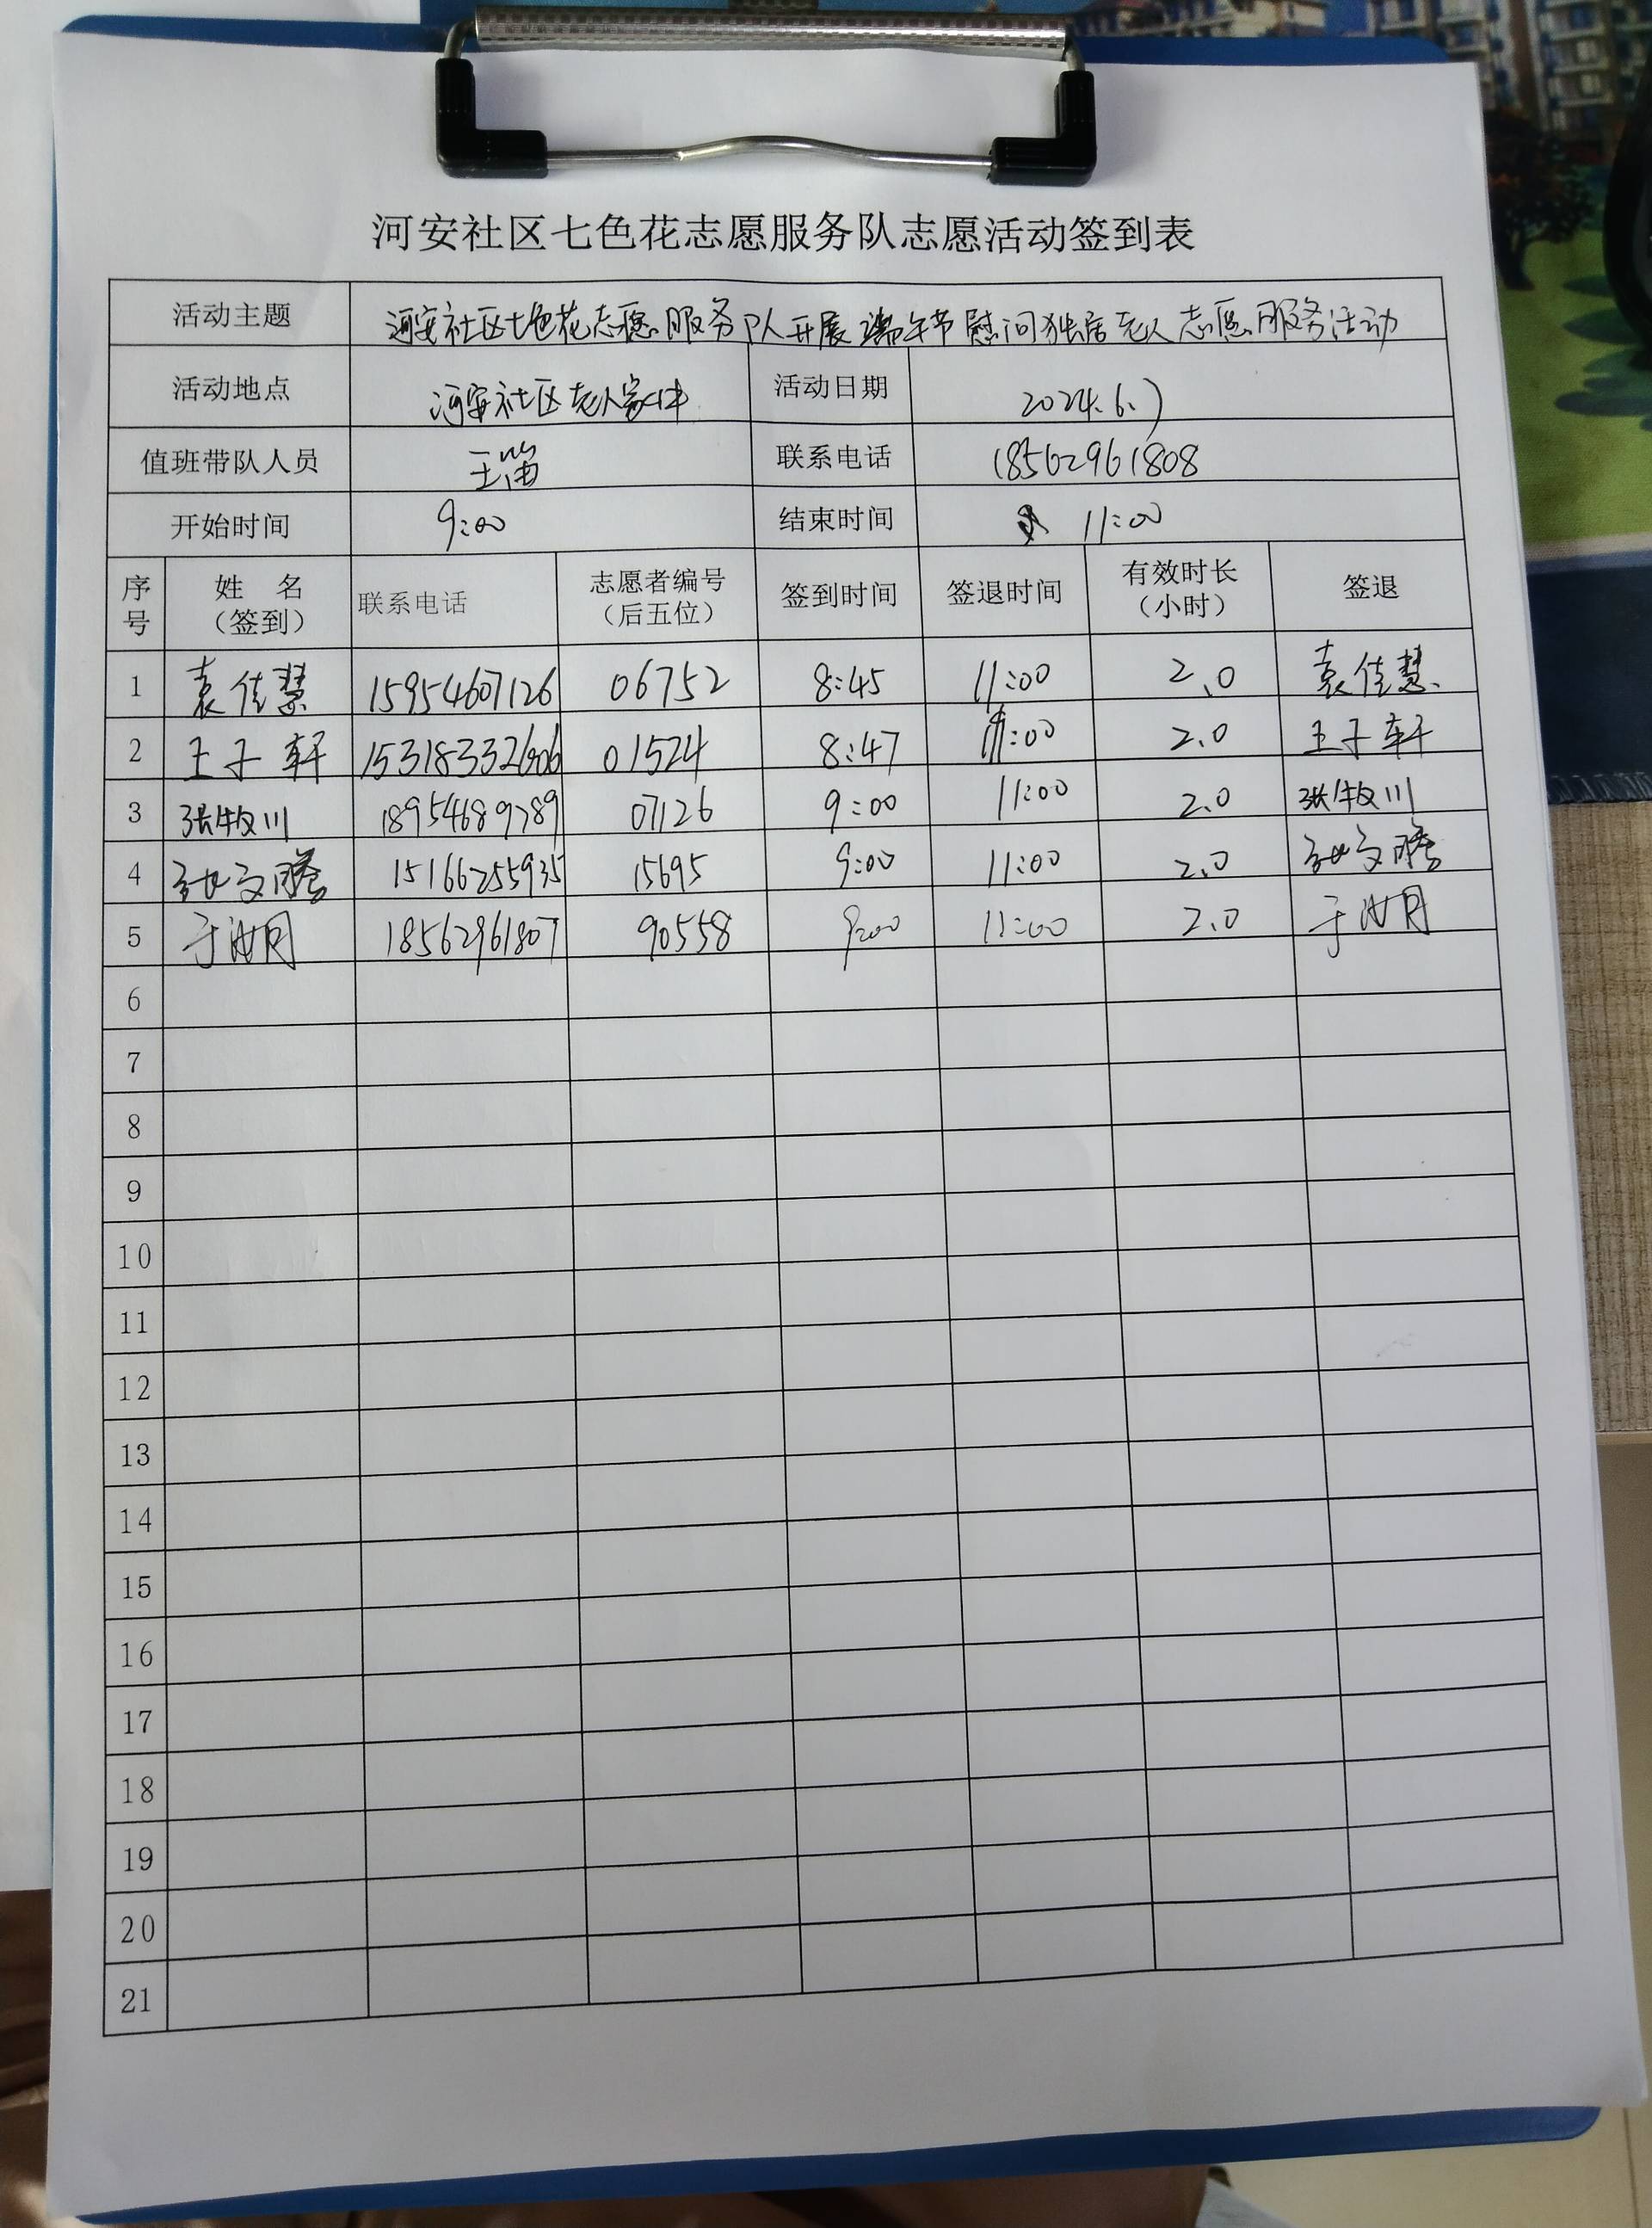 河安社区七色花志愿服务队志愿活动签到表
活动主题 河安社区七色花志愿服务队开展端午节慰问独居老人志愿服务活动
活动地点 河安社区老人家中 活动日期 2024.6.7
值班带队人员 王笛 联系电话 18562961808
开始时间 9:00 结束时间 11:00
序号 姓 名（签到） 联系电话 志愿者编号（后五位） 签到时间 签退时间 有效时长（小时） 签退
1 袁佳慧 15954607126 06752 8:45 11:00 2.0 袁佳慧
2 王子轩 15318332606 01524 8:47 11:00 2.0 王子轩
3 张牧川 18954689789 07126 9:00 11:00 2.0 张牧川
4 15166255935 15695 9:00 11:00 2.0
5 于汝月 18562961807 90558 9:00 11:00 2.0 于汝月
6
7
8
9
10
11
12
13
14
15
16
17
18
19
20
21